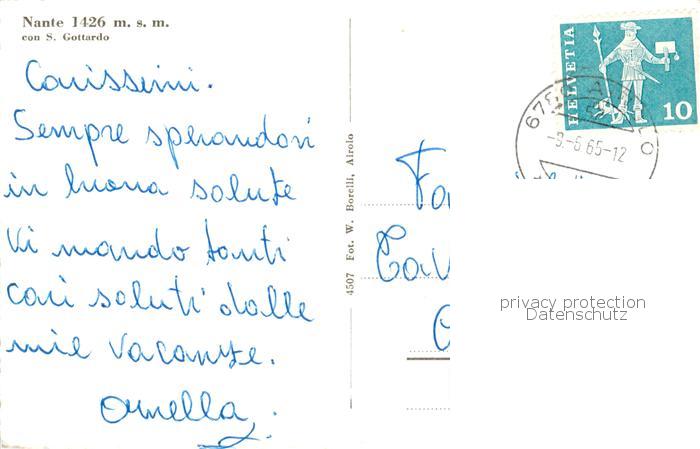 Nante 1426 m. s. m.
con S. Gottardo
Carissimi.
Sempre sperandovi
in buona salute
Vi mando tanti
cari saluti dalle
mie vacanze.
Ornella.
4507 Fot. W. Borelli, Airolo
HELVETIA
10
-9.-6.65-12
privacy protection
Datenschutz